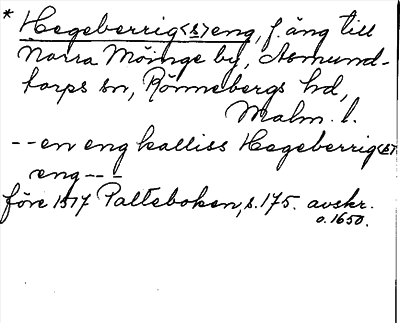 * Hegeberrig<s>eng, f. äng till
Norra Möinge by, Asmund-
torps sn, Rönnebergs hd,
Malm. l.
-- en eng kalliss Hegeberrig<s>
eng ---
före 1517 Palteboken, s. 175. avskr.
o. 1650.